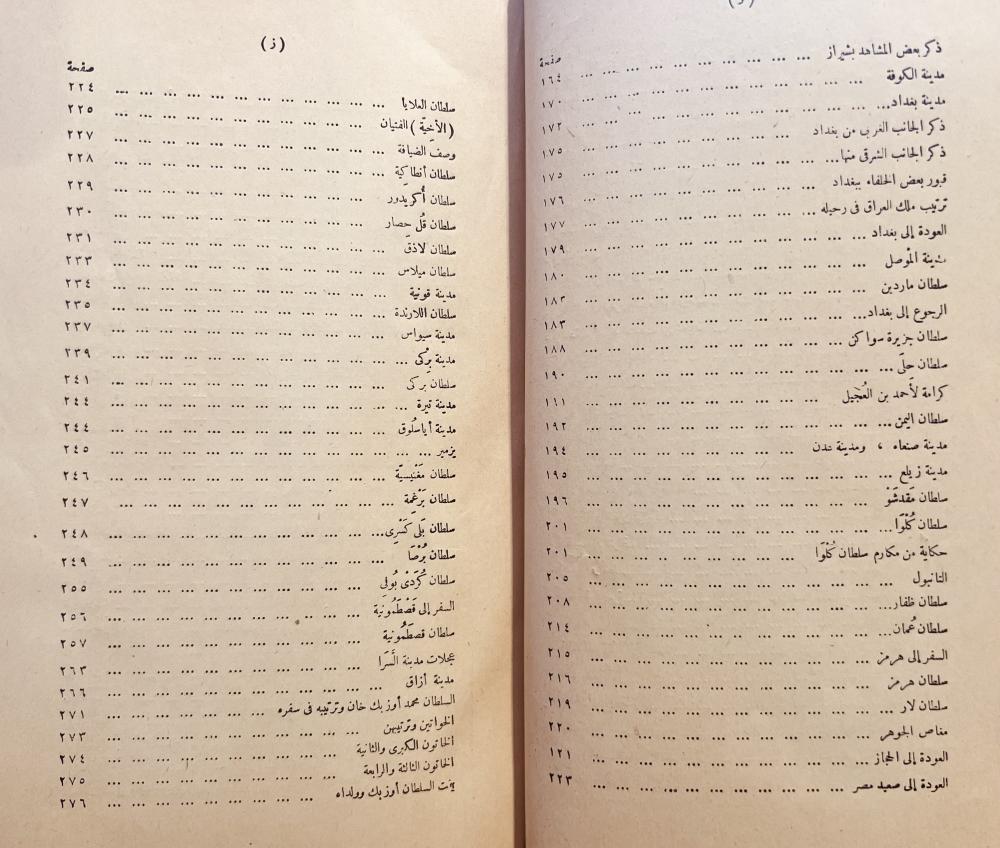 (و)
صفحة
ذكر بعض المشاهد بشيراز ... ... ... ... ... ... ... ... ... ١٦٤
مدينة الكوفة ... ... ... ... ... ... ... ... ... ... ... ١٧٠
مدينة بغداد... ... ... ... ... ... ... ... ... ... ... ١٧٢
ذكر الجانب الغربى من بغداد ... ... ... ... ... ... ... ... ١٧٥
ذكر الجانب الشرقى منها... ... ... ... ... ... ... ... ... ١٧٥
قبور بعض الخلفاء ببغداد ... ... ... ... ... ... ... ... ١٧٦
ترتيب ملك العراق فى رحيله ... ... ... ... ... ... ... ... ١٧٧
العودة إلى بغداد ... ... ... ... ... ... ... ... ... ... ١٧٩
مدينة الموصل ... ... ... ... ... ... ... ... ... ... ... ١٨٠
سلطان ماردين ... ... ... ... ... ... ... ... ... ... ... ١٨٢
الرجوع إلى بغداد... ... ... ... ... ... ... ... ... ... ١٨٣
سلطان جزيرة سواكن ... ... ... ... ... ... ... ... ... ١٨٨
سلطان حلَى ... ... ... ... ... ... ... ... ... ... ... ١٩٠
كرامة لأحمد بن العُجَيل ... ... ... ... ... ... ... ... ١٩١
سلطان اليمن ... ... ... ... ... ... ... ... ... ... ... ١٩٢
مدينة صنعاء ، ومدينة عدن ... ... ... ... ... ... ... ... ١٩٤
مدينة زيلع ... ... ... ... ... ... ... ... ... ... ... ١٩٥
سلطان مَقْدَشَوْ ... ... ... ... ... ... ... ... ... ... ١٩٦
سلطان كُلْوَا... ... ... ... ... ... ... ... ... ... ... ٢٠١
حكاية من مكارم سلطان كُلْوَا ... ... ... ... ... ... ... ٢٠١
التانبول ... ... ... ... ... ... ... ... ... ... ... ٢٠٥
سلطان ظفار... ... ... ... ... ... ... ... ... ... ... ٢٠٨
سلطان عُمان... ... ... ... ... ... ... ... ... ... ... ٢١٤
السفر إلى هرمز ... ... ... ... ... ... ... ... ... ... ٢١٥
سلطان هرمز ... ... ... ... ... ... ... ... ... ... ... ٢١٦
سلطان لار... ... ... ... ... ... ... ... ... ... ... ٢١٩
مغاص الجوهر ... ... ... ... ... ... ... ... ... ... ٢٢٠
العودة إلى الحجاز ... ... ... ... ... ... ... ... ... ١٢١
العودة إلى صعيد مصر ... ... ... ... ... ... ... ... ... ٢٢٣
(ز)
صفحة
سلطان العلايا ... ... ... ... ... ... ... ... ... ... ... ٢٢٤
(الأخيّة) الفتيان ... ... ... ... ... ... ... ... ... ... ٢٢٥
وصف الضيافة ... ... ... ... ... ... ... ... ... ... ... ٢٢٧
سلطان أنطاكية ... ... ... ... ... ... ... ... ... ... ٢٢٨
سلطان أكريدور ... ... ... ... ... ... ... ... ... ... ٢٢٩
سلطان قُل حصار ... ... ... ... ... ... ... ... ... ... ٢٣٠
سلطان لاذق ... ... ... ... ... ... ... ... ... ... ... ٢٣١
سلطان ميلاس ... ... ... ... ... ... ... ... ... ... ... ٢٣٣
مدينة قونية ... ... ... ... ... ... ... ... ... ... ... ٢٣٤
سلطان اللارندة ... ... ... ... ... ... ... ... ... ... ٢٣٥
مدينة سيواس ... ... ... ... ... ... ... ... ... ... ... ٢٣٧
مدينة بِرْكى ... ... ... ... ... ... ... ... ... ... ... ٢٣٩
سلطان بركى ... ... ... ... ... ... ... ... ... ... ... ٢٤١
مدينة تيرة ... ... ... ... ... ... ... ... ... ... ... ٢٤٤
مدينة أياسُلوق ... ... ... ... ... ... ... ... ... ... ٢٤٤
يزمير ... ... ... ... ... ... ... ... ... ... ... ... ٢٤٥
سلطان مَغْنِيسيّة ... ... ... ... ... ... ... ... ... ... ٢٤٦
سلطان بَرْغَمة ... ... ... ... ... ... ... ... ... ... ... ٢٤٧
سلطان بَلى كَسْرِى... ... ... ... ... ... ... ... ... ... ٢٤٨
سلطان بُرْصَا ... ... ... ... ... ... ... ... ... ... ... ٢٤٩
سلطان كُرْدَى بُولى ... ... ... ... ... ... ... ... ... ... ٢٥٥
السفر إلى قَصْطَمُونية ... ... ... ... ... ... ... ... ... ٢٥٦
سلطان قصطَمُونية ... ... ... ... ... ... ... ... ... ... ٢٥٧
عجلات مدينة السَّرَا ... ... ... ... ... ... ... ... ... ... ٢٦٣
مدينة أزاق ... ... ... ... ... ... ... ... ... ... ... ٢٦٦
السلطان محمد أوزبك خان وترتيبه فى سفره ... ... ... ... ... ٢٧١
الخواتين وترتيبهن ... ... ... ... ... ... ... ... ... ... ٢٧٣
الخاتون الكبرى والثانية ... ... ... ... ... ... ... ... ... ٢٧٤
الخاتون الثالثة والرابعة ... ... ... ... ... ... ... ... ... ٢٧٥
بنت السلطان أوزبك وولداه ... ... ... ... ... ... ... ... ٢٧٦